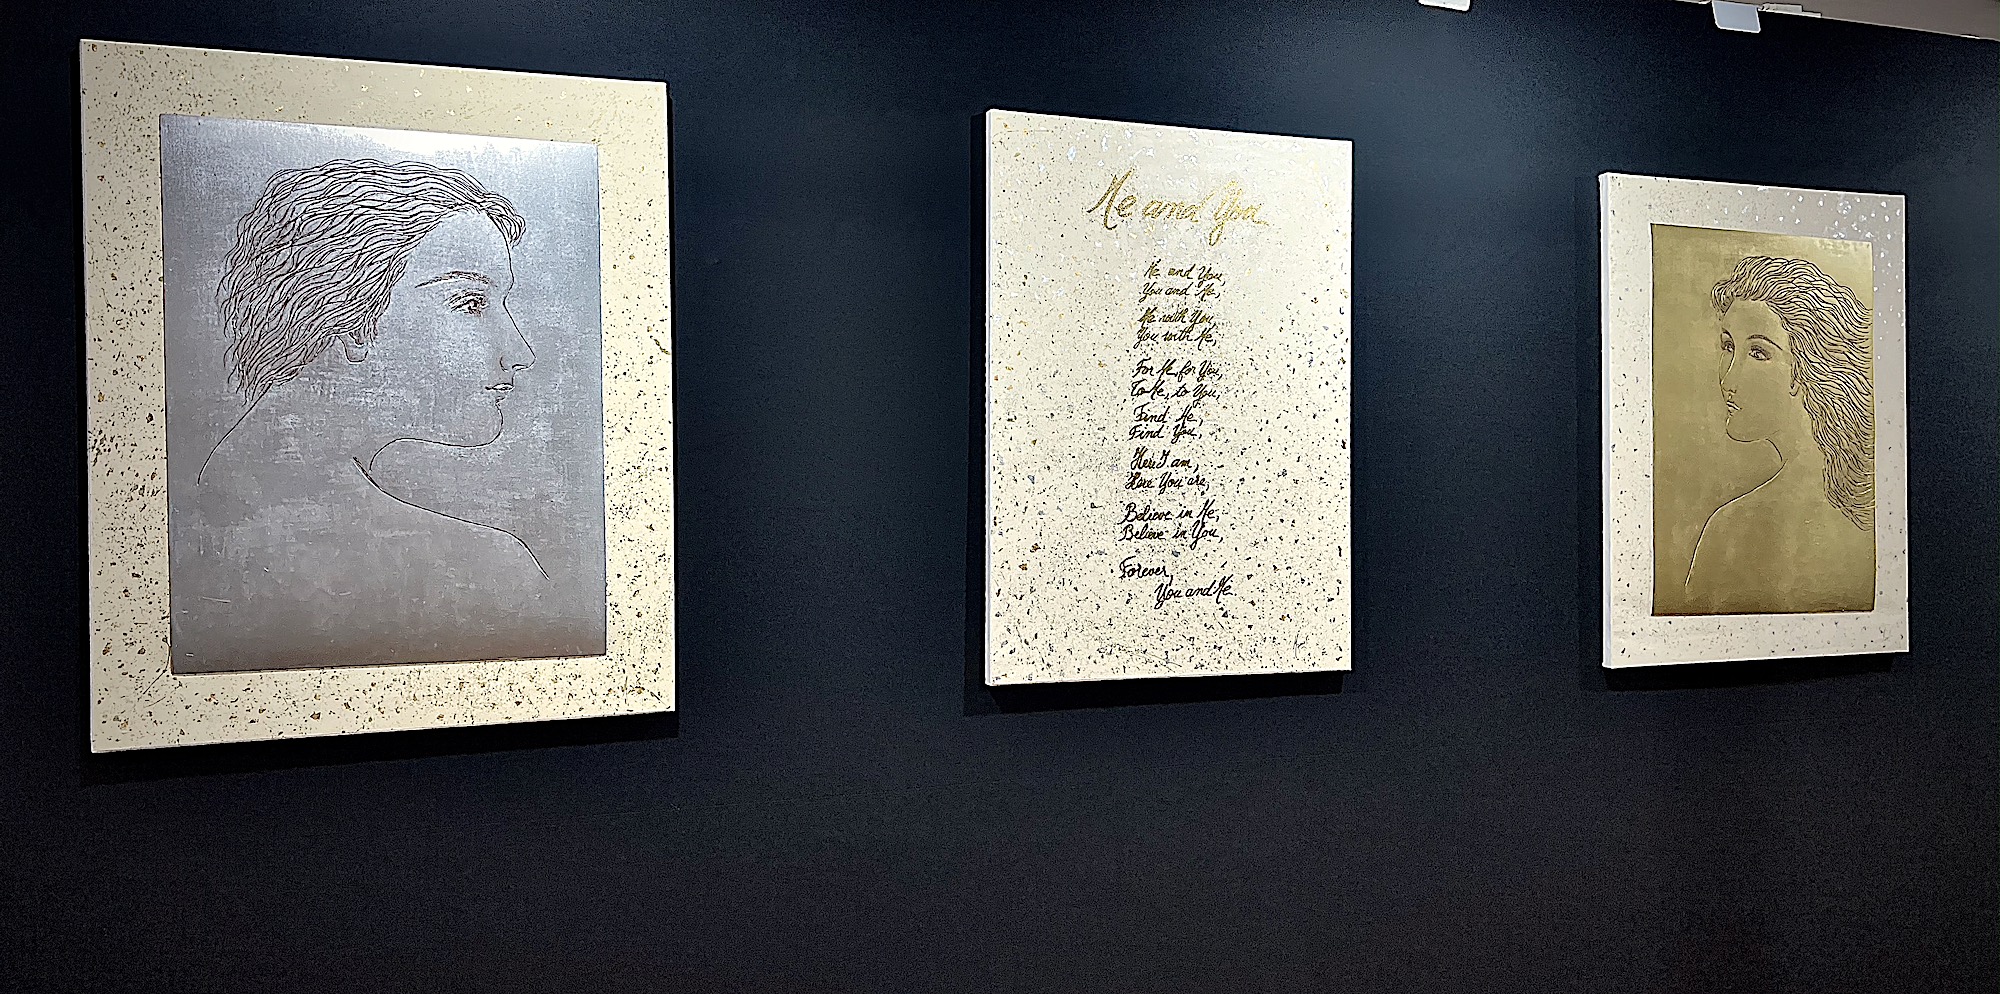 Me and You
Me and You,
You and Me,
Me with You,
You with Me,
For Me, for You,
To Me, to You,
Find Me,
Find You,
Here I am,
Here You are,
Believe in Me,
Believe in You,
Forever,
You and Me.